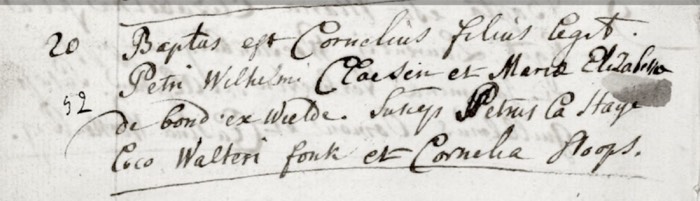 20 Baptus est Cornelius filius legit.
Petri Wilhelmi Claesen et Maria Elizabetha
52 de bond ex Weelde. Suscep Petrus La Haye
Loco Walteri fonk et Cornelia Stoops.